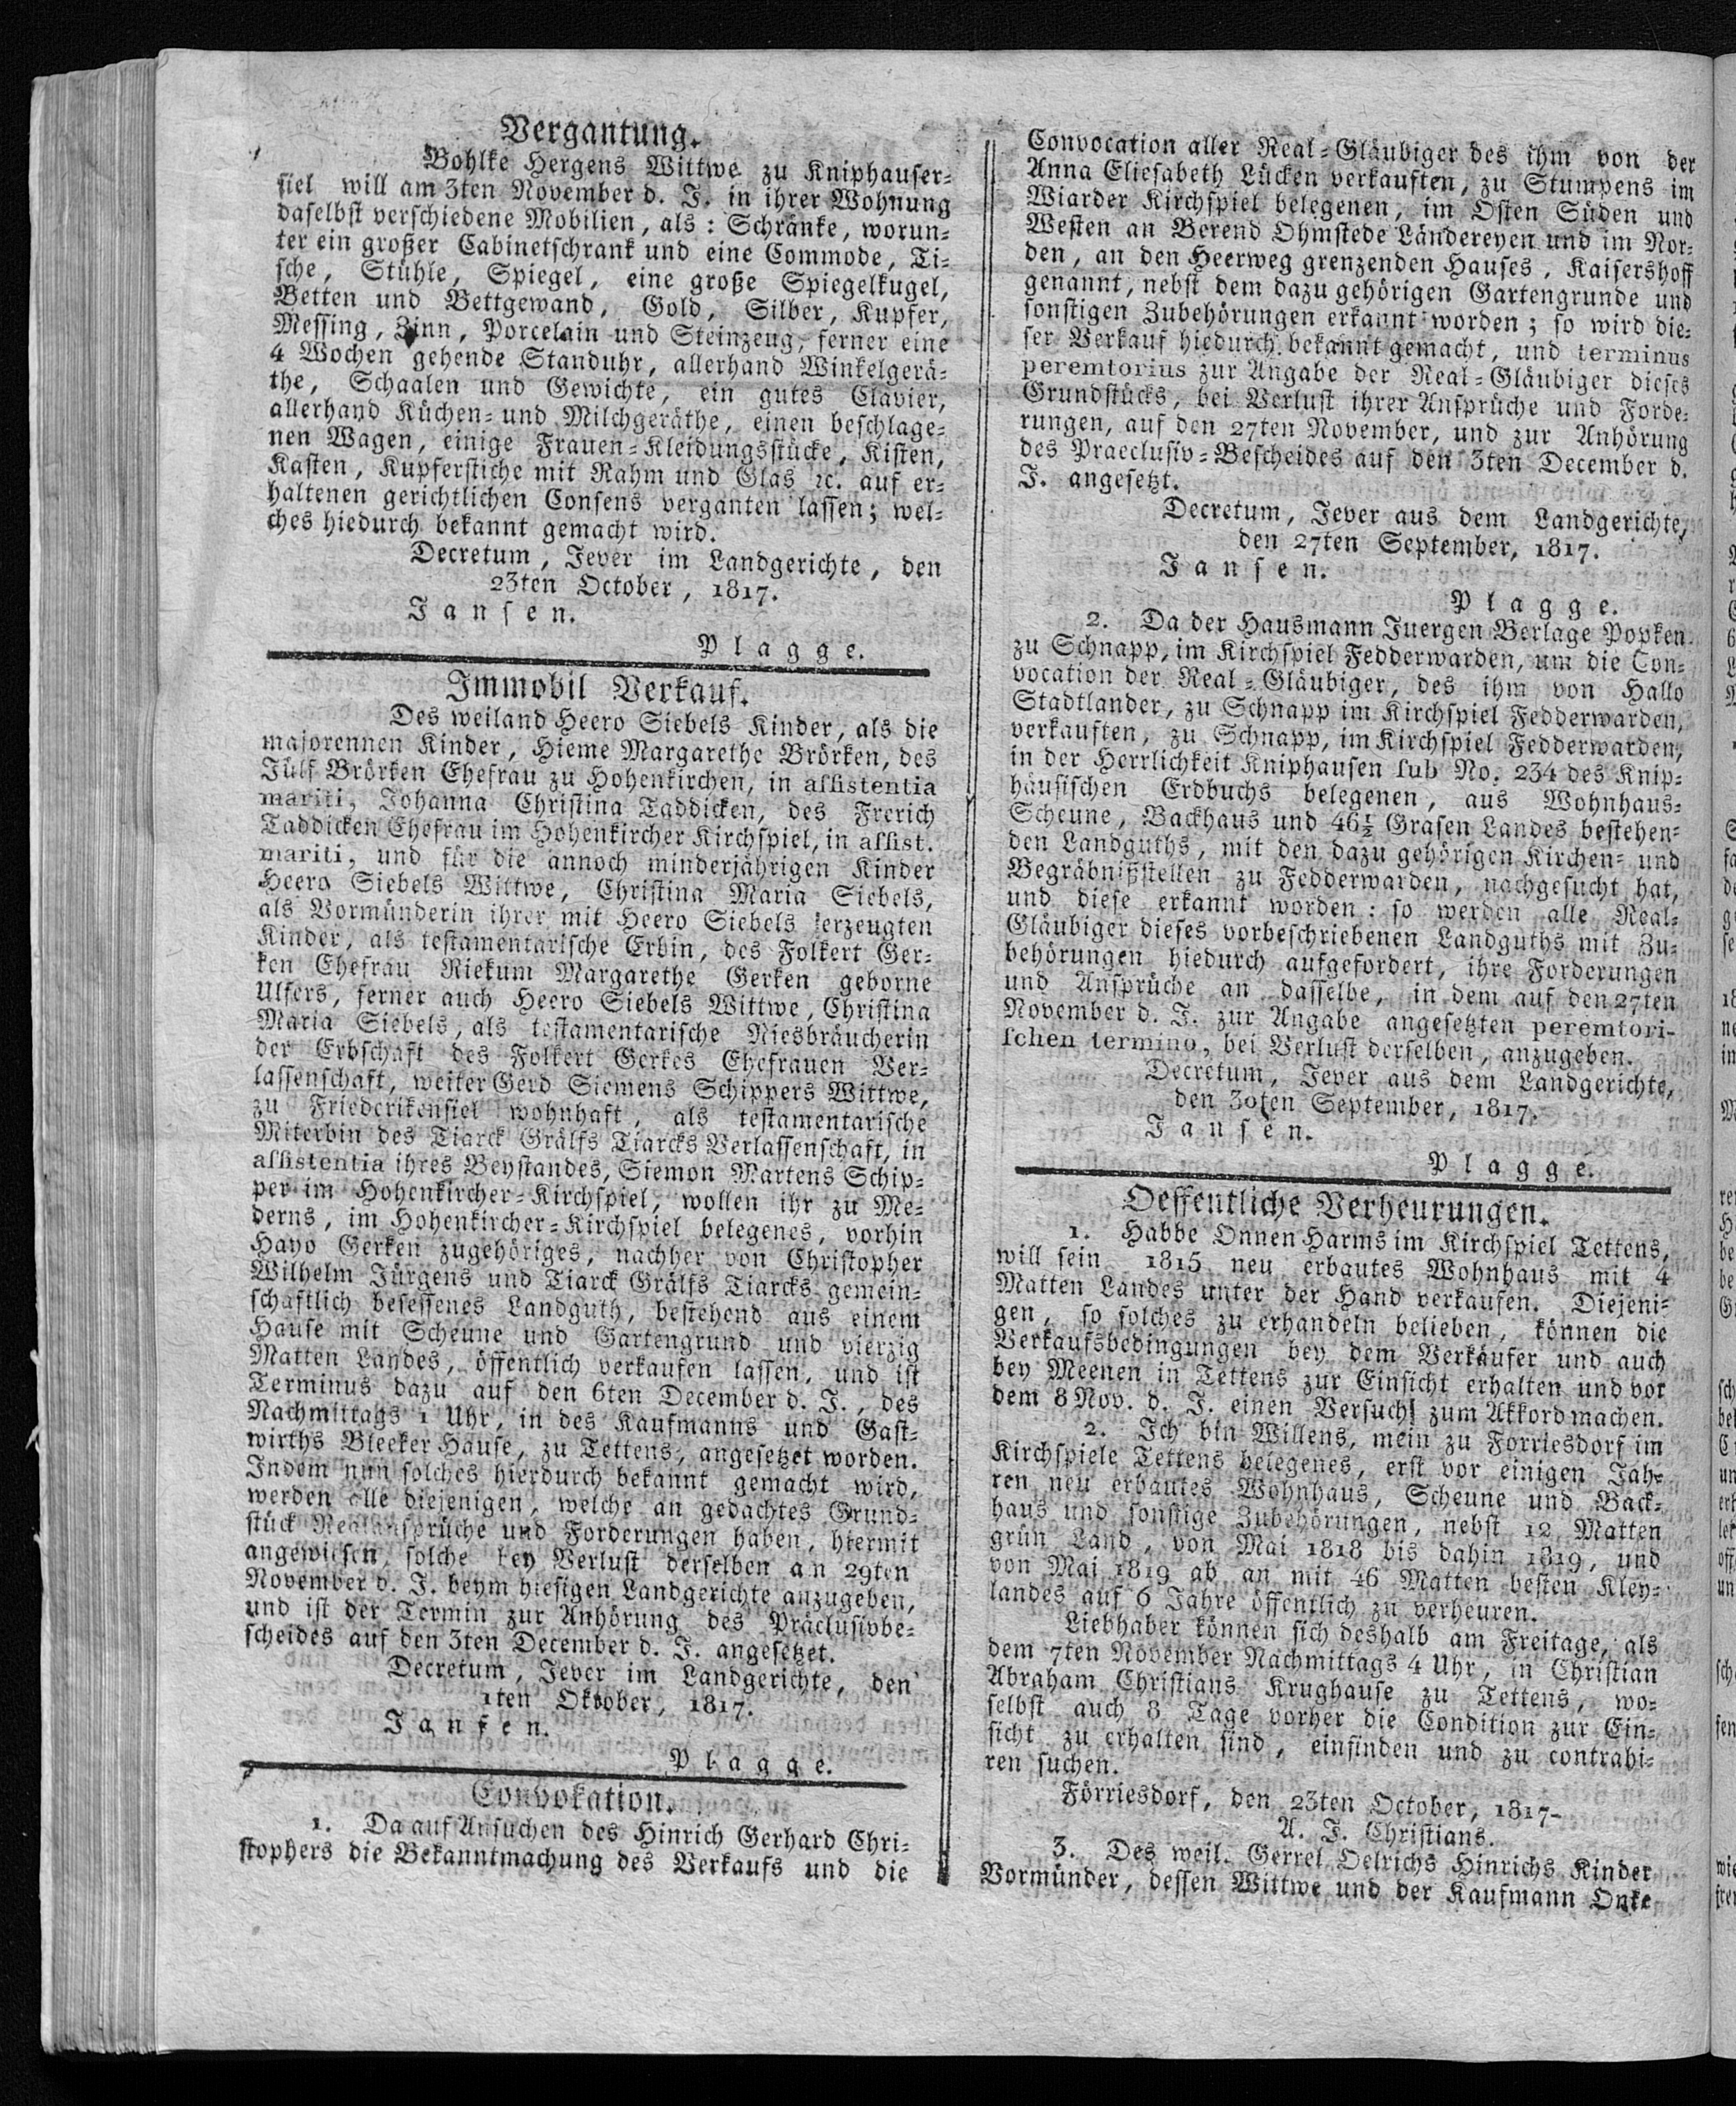 Vergantung.
Bohlke Hergens Wittwe zu Kniphauser-
siel will am 3ten November d. J. in ihrer Wohnung
daselbst verschiedene Mobilien, als: Schränke, worun-
ter ein großer Cabinetschrank und eine Commode, Ti-
sche, Stühle, Spiegel, eine große Spiegelkugel,
Betten und Bettgewand, Gold, Silber, Kupfer,
Messing, Zinn, Porcelain und Steinzeug, ferner eine
4 Wochen gehende Standuhr, allerhand Winkelgerä-
the, Schaalen und Gewichte, ein gutes Clavier,
allerhand Küchen- und Milchgeräthe, einen beschlage-
nen Wagen, einige Frauen-Kleidungsstücke, Kisten,
Kasten, Kupferstiche mit Rahm und Glas ꝛc. auf er-
haltenen gerichtlichen Consens verganten lassen; wel-
ches hiedurch bekannt gemacht wird.
Decretum, Jever im Landgerichte, den
23ten October, 1817.
Jansen.
Plagge.
Immobil Verkauf.
Des weiland Heero Siebels Kinder, als die
majorennen Kinder, Hieme Margarethe Brörken, des
Jülf Brörken Ehefrau zu Hohenkirchen, in assistentia
mariti, Johanna Christina Taddicken, des Frerich
Taddicken Ehefrau im Hohenkircher Kirchspiel, in assist.
mariti, und für die annoch minderjährigen Kinder
Heero Siebels Wittwe, Christina Maria Siebels,
als Vormünderin ihrer mit Heero Siebels erzeugten
Kinder, als testamentarische Erbin, des Folkert Ger-
ken Ehefrau Riekum Margarethe Gerken geborne
Ulfers, ferner auch Heero Siebels Wittwe, Christina
Maria Siebels, als testamentarische Niesbräucherin
der Erbschaft des Folkert Gerkes Ehefrauen Ver-
lassenschaft, weiter Gerd Siemens Schippers Wittwe,
zu Friederikensiel wohnhaft, als testamentarische
Miterbin des Tiarck Grälfs Tiarcks Verlassenschaft, in
assistentia ihres Beystandes, Siemon Martens Schip-
per im Hohenkircher-Kirchspiel, wollen ihr zu Me-
derns, im Hohenkircher-Kirchspiel belegenes, vorhin
Hayo Gerken zugehöriges, nachher von Christopher
Wilhelm Jürgens und Tiarck Grälfs Tiarcks gemein-
schaftlich besessenes Landguth, bestehend aus einem
Hause mit Scheune und Gartengrund und vierzig
Matten Landes, öffentlich verkaufen lassen, und ist
Terminus dazu auf den 6ten December d. J., des
Nachmittags 1 Uhr, in des Kaufmanns und Gast-
wirths Bleeker Hause, zu Tettens, angesetzet worden.
Indem nun solches hierdurch bekannt gemacht wird,
werden alle diejenigen, welche an gedachtes Grund-
stück Realansprüche und Forderungen haben, hiermit
angewiesen, solche bey Verlust derselben an 29ten
November d. J. beym hiesigen Landgerichte anzugeben,
und ist der Termin zur Anhörung des Präclusivbe-
scheides auf den 3ten December d. J. angesetzet.
Decretum, Jever im Landgerichte, den
1ten Oktober, 1817.
Jansen.
Plagge.
Convokation.
1. Da auf Ansuchen des Hinrich Gerhard Chri-
stophers die Bekanntmachung des Verkaufs und die
Convocation aller Real-Gläubiger des ihm von der
Anna Eliesabeth Lücken verkauften, zu Stumpens im
Wiarder Kirchspiel belegenen, im Osten Süden und
Westen an Berend Ohmstede Ländereyen und im Nor-
den, an den Heerweg grenzenden Hauses, Kaisershoff
genannt, nebst dem dazu gehörigen Gartengrunde und
sonstigen Zubehörungen erkannt worden; so wird die-
ser Verkauf hiedurch bekannt gemacht, und terminus
peremtorius zur Angabe der Real-Gläubiger dieses
Grundstücks, bei Verlust ihrer Ansprüche und Forde-
rungen, auf den 27ten November, und zur Anhörung
des Praeclusiv-Bescheides auf den 3ten December d.
J. angesetzt.
Decretum, Jever aus dem Landgerichte,
den 27ten September, 1817.
Jansen.
Plagge.
2. Da der Hausmann Juergen Berlage Popken
zu Schnapp, im Kirchspiel Fedderwarden, um die Con-
vocation der Real-Gläubiger, des ihm von Hallo
Stadtlander, zu Schnapp im Kirchspiel Fedderwarden,
verkauften, zu Schnapp, im Kirchspiel Fedderwarden,
in der Herrlichkeit Kniphausen sub No. 234 des Knip-
häusischen Erdbuchs belegenen, aus Wohnhaus-
Scheune, Backhaus und 46½ Grasen Landes bestehen-
den Landguths, mit den dazu gehörigen Kirchen- und
Begräbnißstellen zu Fedderwarden, nachgesucht hat,
und diese erkannt worden: so werden alle Real-
Gläubiger dieses vorbeschriebenen Landguths mit Zu-
behörungen hiedurch aufgefordert, ihre Forderungen
und Ansprüche an dasselbe, in dem auf den 27ten
November d. J. zur Angabe angesetzten peremtori-
schen termino, bei Verlust derselben, anzugeben.
Decretum, Jever aus dem Landgerichte,
den 30ten September, 1817.
Jansen.
Plagge.
Oeffentliche Verheurungen.
1. Habbe Onnen Harms im Kirchspiel Tettens,
will sein 1815 neu erbautes Wohnhaus mit 4
Matten Landes unter der Hand verkaufen. Diejeni-
gen, so solches zu erhandeln belieben, können die
Verkaufsbedingungen bey dem Verkäufer und auch
bey Meenen in Tettens zur Einsicht erhalten und vor
dem 8 Nov. d. J. einen Versuch zum Akkord machen.
2. Ich bin Willens, mein zu Forriesdorf im
Kirchspiele Tettens belegenes, erst vor einigen Jah-
ren neu erbautes Wohnhaus, Scheune und Back-
haus und sonstige Zubehörungen, nebst 12 Matten
grün Land, von Mai 1818 bis dahin 1819, und
von Mai 1819 ab an mit 46 Matten besten Kley-
landes auf 6 Jahre öffentlich zu verheuren.
Liebhaber können sich deshalb am Freitage, als
dem 7ten November Nachmittags 4 Uhr, in Christian
Abraham Christians Krughause zu Tettens, wo-
selbst auch 8 Tage vorher die Condition zur Ein-
sicht zu erhalten sind, einfinden und zu contrahi-
ren suchen.
Förriesdorf, den 23ten October, 1817-
A. J. Christians.
3. Des weil. Gerrel Oelrichs Hinrichs Kinder
Vormünder, dessen Wittwe und der Kaufmann Onke